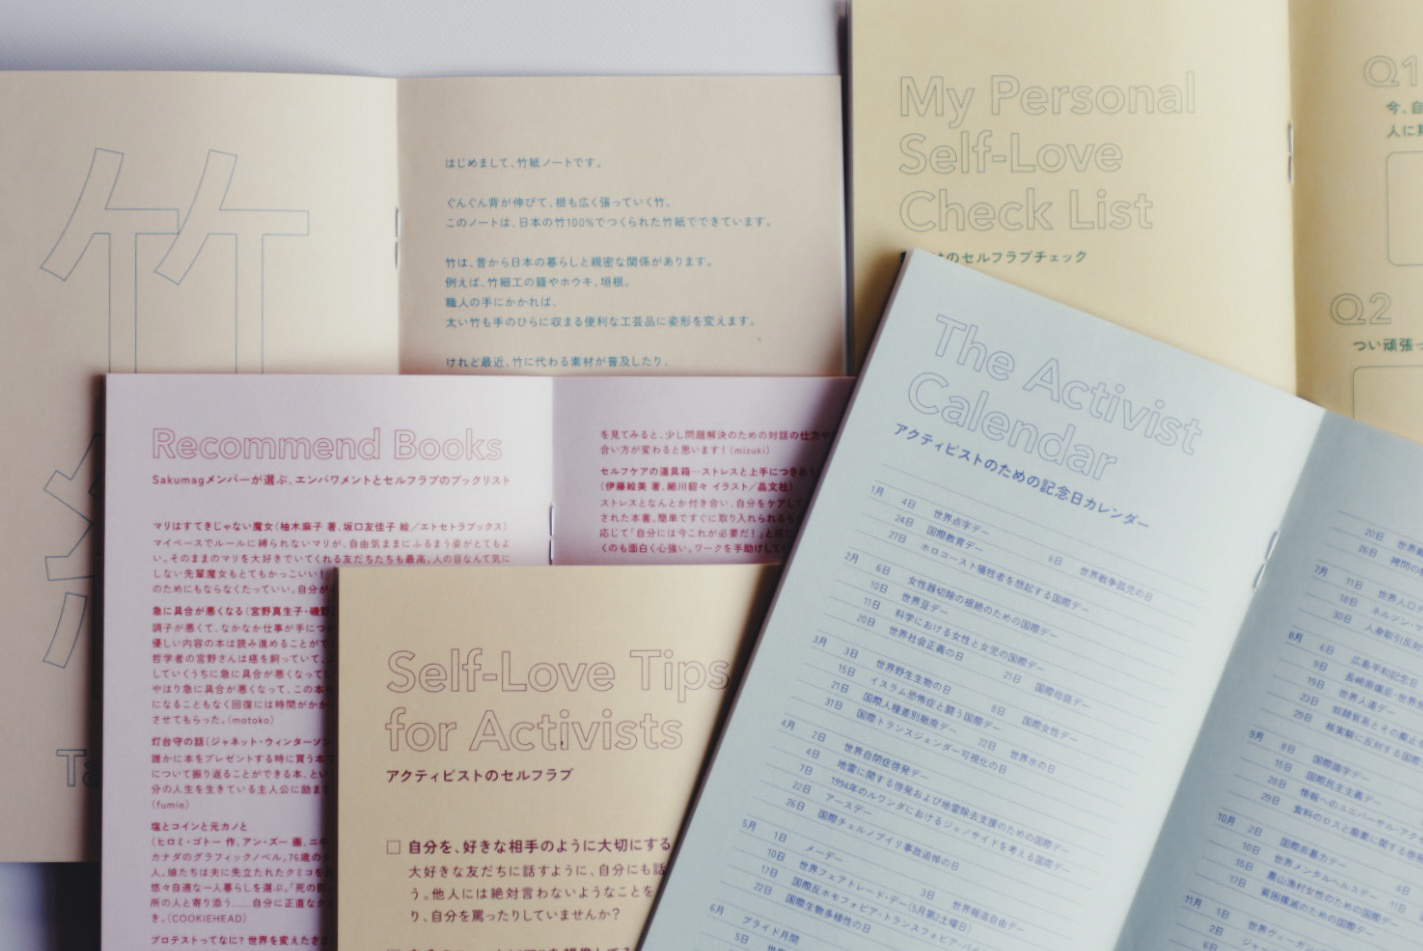 竹
紙
Ta
はじめまして、竹紙ノートです。
ぐんぐん背が伸びて、根も広く張っていく竹。
このノートは、日本の竹100%でつくられた竹紙でできています。
竹は、昔から日本の暮らしと親密な関係があります。
例えば、竹細工の籠やホウキ、垣根。
職人の手にかかれば、
太い竹も手のひらに収まる便利な工芸品に姿形を変えます。
けれど最近、竹に代わる素材が普及したり、
My Personal
Self-Love
Check List
のセルフラブチェック
Q1
今、自
人に
Q2
つい頑張っ
Recommend Books
Sakumagメンバーが選ぶ、エンパワメントとセルフラブのブックリスト
マリはすてきじゃない魔女（柚木麻子 著、坂口友佳子 絵／エトセトラブックス）
マイペースでルールに縛られないマリが、自由気ままにふるまう姿がとてもよ
い。そのままのマリを大好きでいてくれる友だちたちも最高。人の目なんて気に
しない先輩魔女もとてもかっこいい！
のためにもならなくたっていい。自分が
急に具合が悪くなる（宮野真生子・磯野
調子が悪くて、なかなか仕事が手につ
優しい内容の本は読み進めることがで
哲学者の宮野さんは癌を飼っていて、
していくうちに急に具合が悪くなってし
やはり急に具合が悪くなって、この本
になることもなく回復には時間がかか
させてもらった。（motoko）
灯台守の話（ジャネット・ウィンターソン
誰かに本をプレゼントする時に買う本
について振り返ることができる本、とい
分の人生を生きている主人公に励ま
（fumie）
塩とコインと元カノと
（ヒロミ・ゴトー 作、アン・ズー 画、ニキ
カナダのグラフィックノベル。76歳の
人。娘たちは夫に先立たれたクミコを
悠々自適な一人暮らしを選ぶ。「死の影
所の人と寄り添う……自分に正直な
き。（COOKIEHEAD）
プロテストってなに？ 世界を変えたさ
を見てみると、少し問題解決のための対話の仕方や
合い方が変わると思います！（mizuki）
セルフケアの道具箱─ストレスと上手につきあう
（伊藤絵美 著、細川貂々 イラスト／晶文社）
ストレスとなんとか付き合い、自分をケアして
された本書。簡単ですぐに取り入れられる
応じて「自分には今これが必要だ！」と
くのも面白く心強い。ワークを手助けしてい
Self-Love Tips
for Activists
アクティビストのセルフラブ
□ 自分を、好きな相手のように大切にする
大好きな友だちに話すように、自分にも話
う。他人には絶対言わないようなことを
り、自分を罵ったりしていませんか？
The Activist
Calendar
アクティビストのための記念日カレンダー
1月 4日 世界点字デー
24日 国際教育デー 6日 世界戦争孤児の日
27日 ホロコースト犠牲者を想起する国際デー
2月 6日 女性器切除の根絶のための国際デー
10日 世界豆デー
11日 科学における女性と女児の国際デー
20日 世界社会正義の日 21日 国際母語デー
3月 3日 世界野生生物の日
15日 イスラム恐怖症と闘う国際デー 8日 国際女性デー
21日 国際人種差別撤廃デー 22日 世界水の日
31日 国際トランスジェンダー可視化の日
4月 2日 世界自閉症啓発デー
4日 地雷に関する啓発および地雷除去支援のための国際デー
7日 1994年のルワンダにおけるジェノサイドを考える国際デー
22日 アースデー
26日 国際チェルノブイリ事故追悼の日
5月 1日 メーデー
10日 世界フェアトレード・デー（5月第2土曜日） 3日 世界報道自由デー
17日 国際反ホモフォビア・トランスフォビア・バイ
22日 国際生物多様性の日
6月 プライド月間
5日
20日 世界
26日 拷問の
7月 11日 世界人口
18日 ネルソン・
30日 人身取引反対
8月 6日 広島平和記念日
9日
19日 世界人道デー
23日 奴隷貿易とその廃止
29日 核実験に反対する国際
8日 国際識字デー
15日 国際民主主義デー
28日 情報へのユニバーサル・アク
29日 食料のロスと廃棄に関する啓
10月 2日 国際非暴力デー
10日 世界メンタルヘルスデー 4日
15日 農山漁村女性のための国際デー
17日 貧困撲滅のための国際デー
11月 1日 世界ヴィー
2日 ジャ
6日